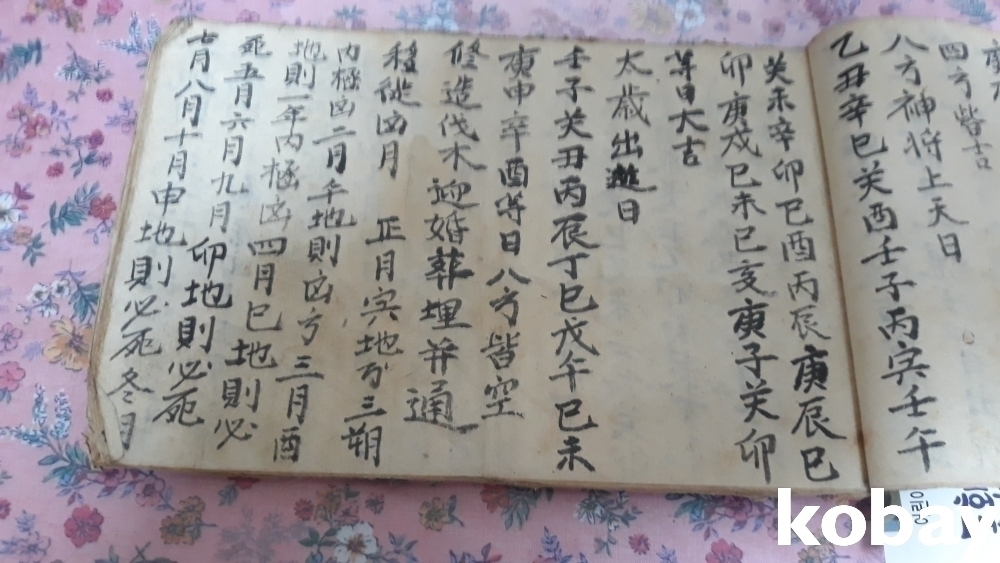 四方皆吉
八方神将上天日
乙丑辛巳关酉壬子丙寅壬午
关未辛卯巳酉丙辰庚辰巳
卯庚戌巳未巳亥庚子关卯
等日大吉
太歲出遊日
壬子关丑丙辰丁巳戊午巳未
庚申辛酉等日八方皆空
修造伐木迎婚葬埋并通
移徙凶月 正月寅地方三朔
內極凶二月午地則凶方三月酉
地則一年內極凶四月巳地則必
死五月六月九月卯地則必死
七月八月十月申地則必死冬月
kobay